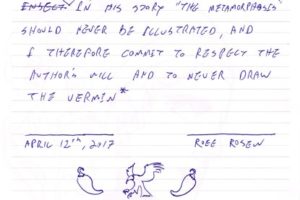 INSECT IN HIS STORY "THE METAMORPHOSES"
SHOULD NEVER BE ILLUSTRATED, AND
I THEREFORE COMMIT TO RESPECT THE
AUTHOR'S WILL AND TO NEVER DRAW
THE VERMIN*
APRIL 12TH, 2017 ROEE ROSEN